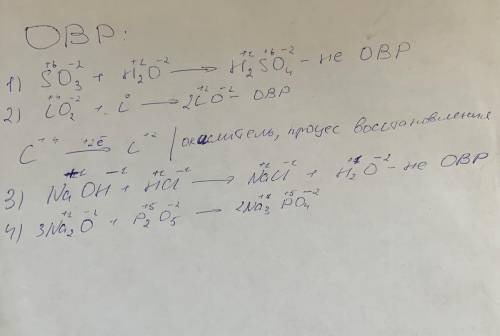 ОВР:
1) S⁺⁶O₃⁻² + H₂⁺¹O⁻² → H₂⁺¹S⁺⁶O₄⁻² - не ОВР
2) C⁺⁴O₂⁻² + C⁰ → 2C⁺²O⁻² - ОВР
C⁺⁴ +2ē → C⁺² / окислитель, процес восстановления
3) Na⁺¹OH⁻¹ + H⁺¹Cl⁻¹ → Na⁺¹Cl⁻¹ + H₂⁺¹O⁻² - не ОВР
4) 3Na₂⁺¹O⁻² + P₂⁺⁵O₅⁻² → 2Na₃⁺¹P⁺⁵O₄⁻²